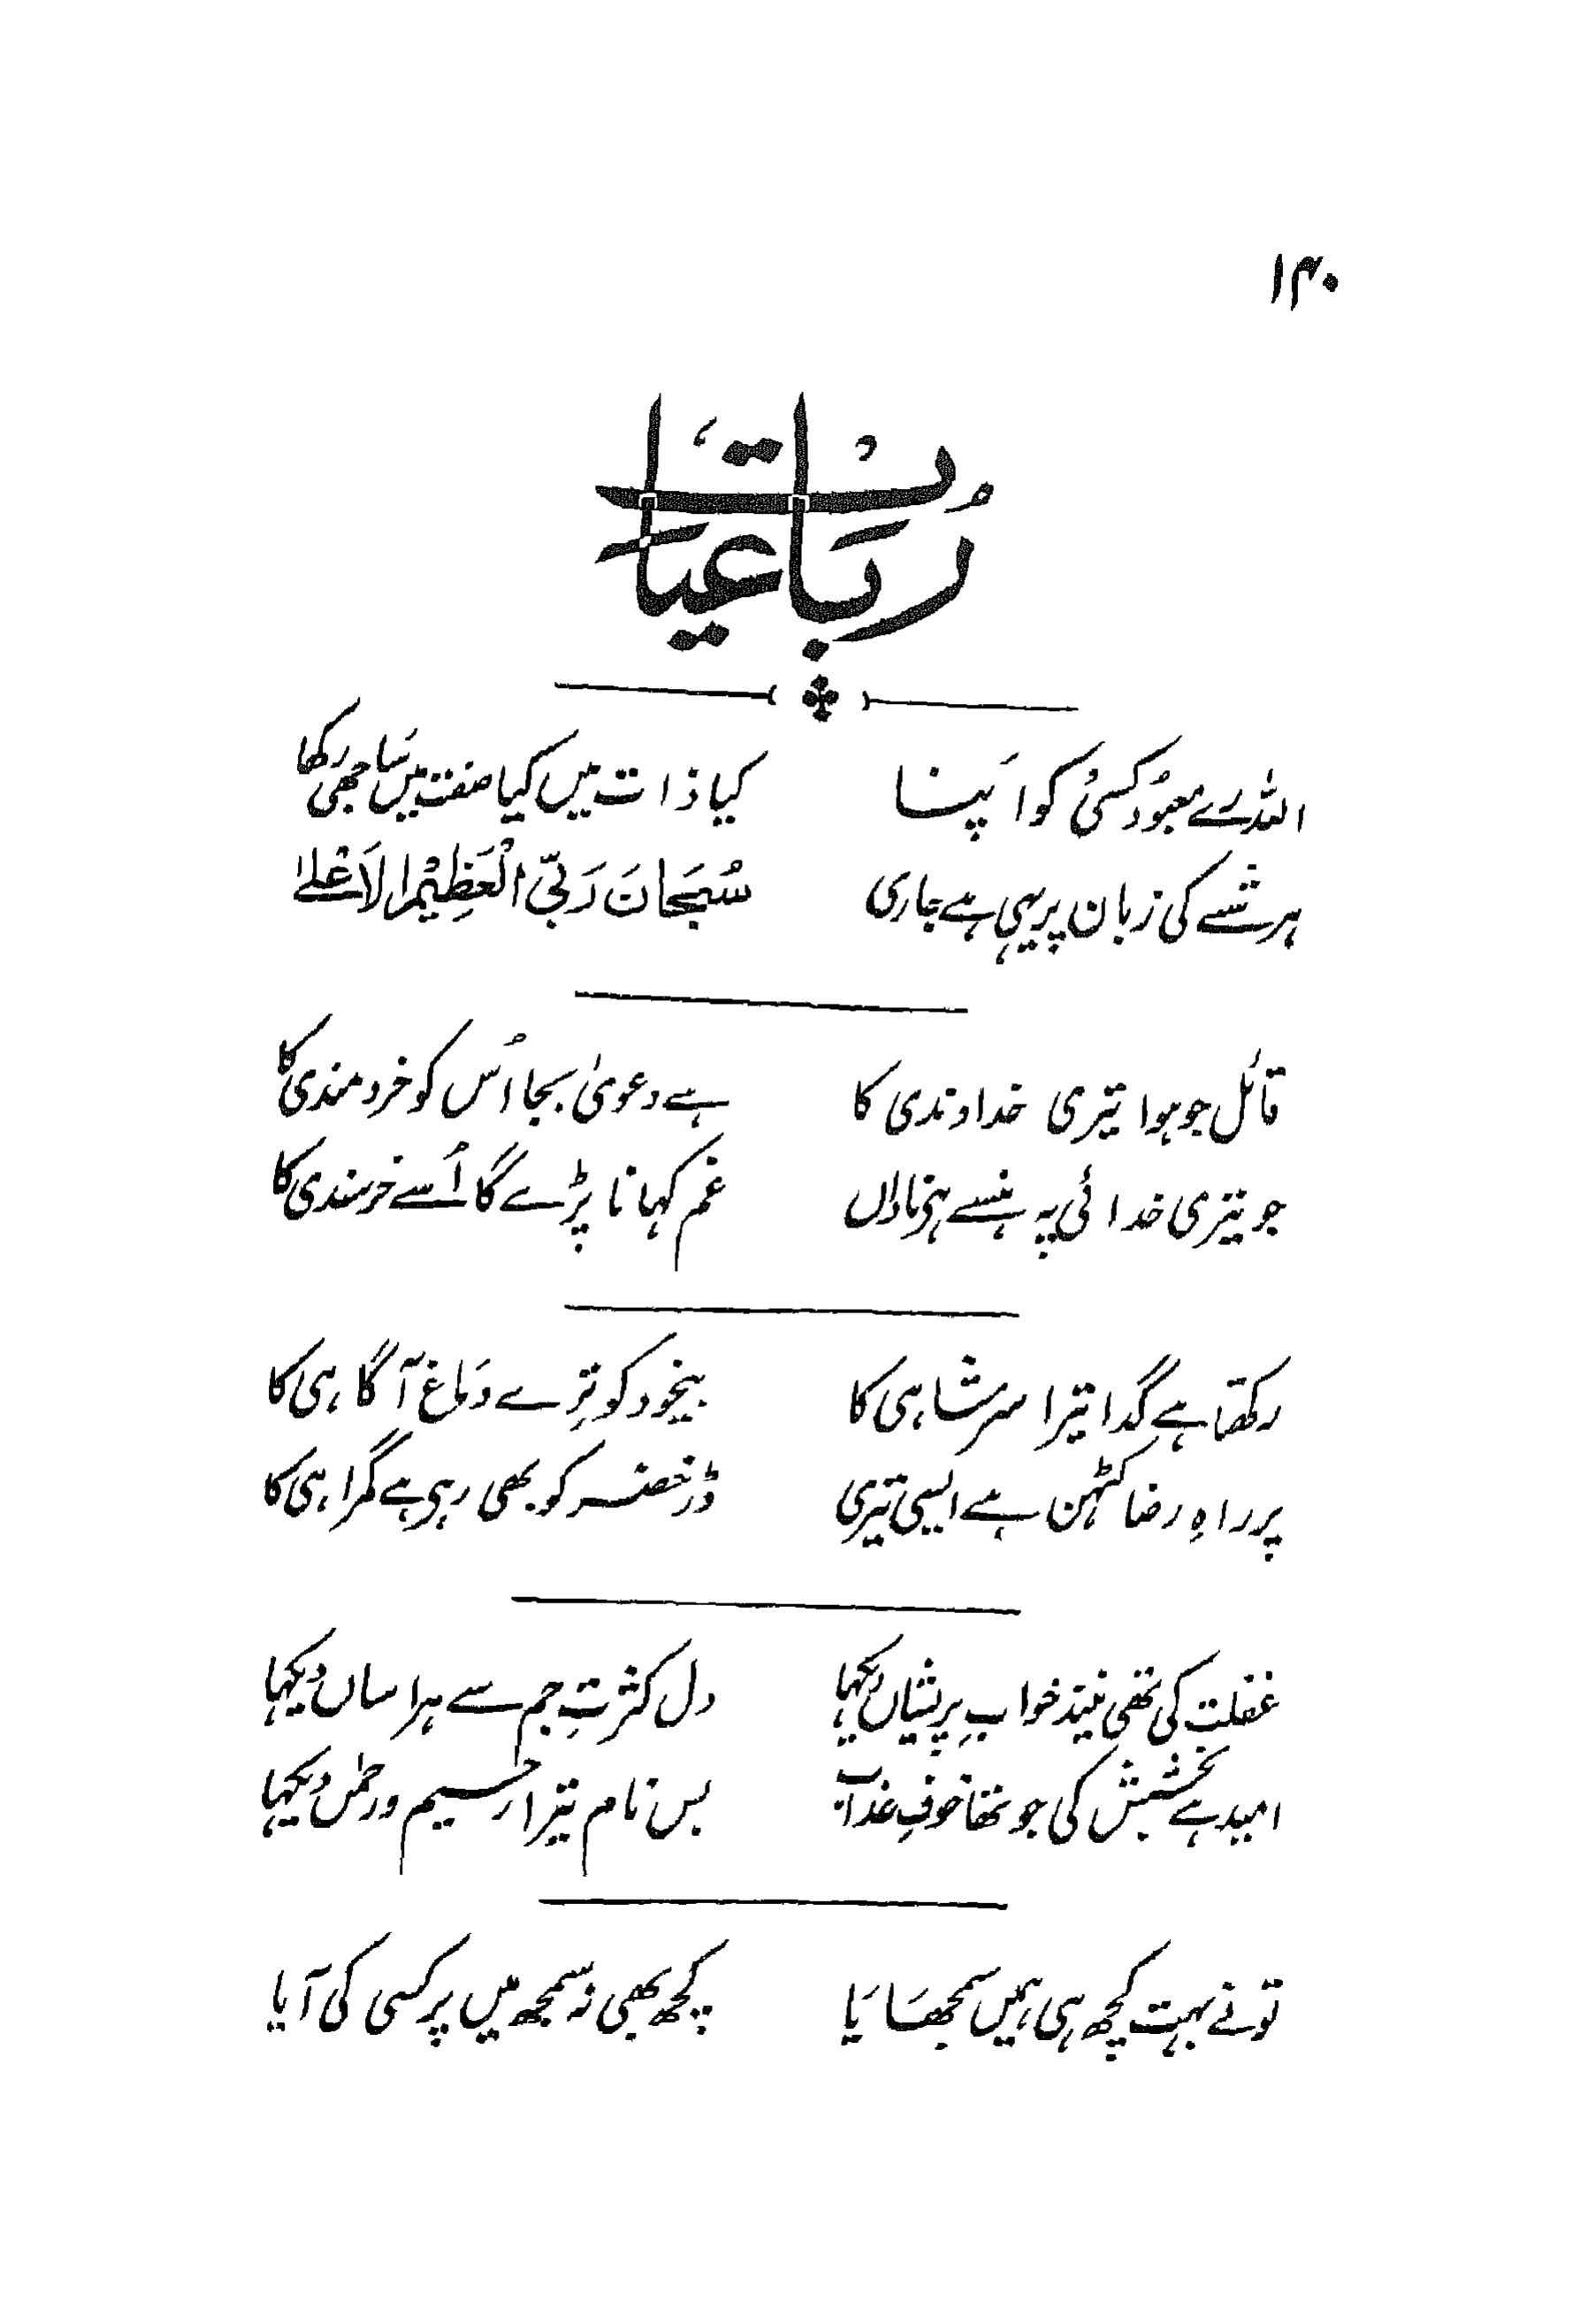 ۱۴۰
رُباعیات
اللہ رے معبود کسی کو اپنا
کیا ذات میں کیا صفت میں ساجھی رکھا
ہر شے کی زبان پر یہی ہے جاری
سُبحَانَ رَبِّیَ الْعَظِیْمِ الْاَعْلیٰ
قائل جو ہوا تیری خداوندی کا
ہے دعویٰ بجا اُس کو خردمندی کا
جو تیری خدائی پہ ہنسے ہر ناداں
غم کہانا پڑے گا اُسے خرسندی کا
رکھتا ہے گدا تیرا سر شاہی کا
بیخود کو تِرے دَماغ آگاہی کا
پر راہِ رضا کٹہن ہے ایسی تیری
ڈر خضر کو بھی رہی ہے گمراہی کا
غفلت کی تھی نیند خوابِ پریشاں دیکہا
دل کثرتِ جرم سے ہراساں دیکہا
امید ہے بخشش کی جو تھا خوفِ عذاب
بس نام تیرا رحیم و رحمٰن دیکہا
تو نے بہت کچھ ہی ہمیں سمجھَایَا
کچھ بھی نہ سمجھ میں پر کسی کی آیا